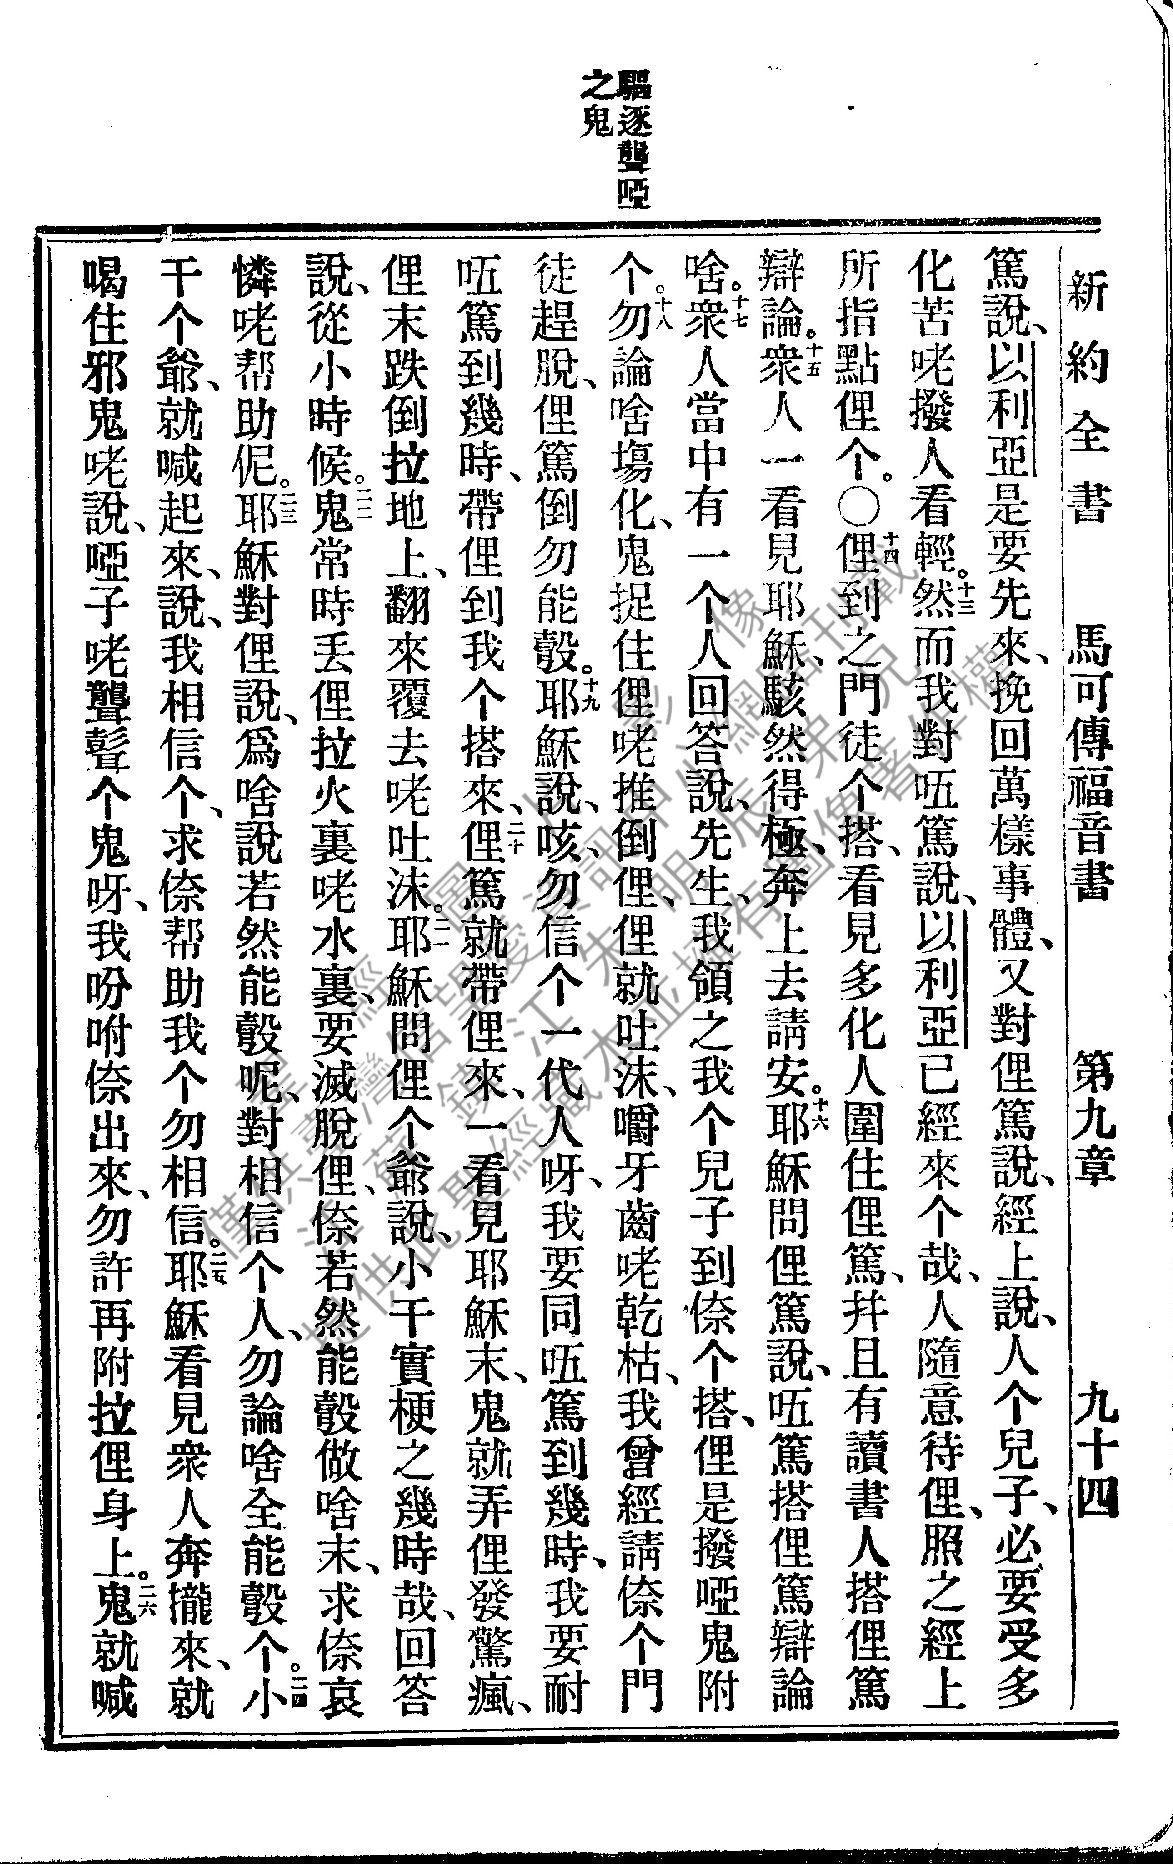 新約全書 馬可傳福音書 第九章 九十四
驅逐聾啞
之鬼
篤說、以利亞是要先來、挽回萬樣事體、又對俚篤說、經上說、人个兒子、必要受多
化苦咾撥人看輕。十三然而我對呾篤說、以利亞已經來个哉、人隨意待俚、照之經上
所指點俚个。〇十四俚到之門徒个搭、看見多化人圍住俚篤、幷且有讀書人搭俚篤
辯論。十五衆人一看見耶穌、駭然得極、奔上去請安。十六耶穌問俚篤說、呾篤搭俚篤辯論
啥。十七衆人當中有一个人回答說、先生、我領之我个兒子到倷个搭、俚是撥啞鬼附
个。十八勿論啥塲化、鬼捉住俚咾推倒俚、俚就吐沫、嚼牙齒咾乾枯、我曾經請倷个門
徒趕脫、俚篤倒勿能彀。十九耶穌說、咳、勿信个一代人呀、我要同呾篤到幾時、我要耐
呾篤到幾時、帶俚到我个搭來、二十俚篤就帶俚來、一看見耶穌末、鬼就弄俚發驚瘋、
俚末跌倒拉地上、翻來覆去咾吐沫。二一耶穌問俚个爺說、小干實梗之幾時哉、回答
說、從小時候。二二鬼常時丟俚拉火裏咾水裏、要滅脫俚、倷若然能彀做啥末、求倷哀
憐咾帮助伲。二三耶穌對俚說、爲啥說若然能彀呢、對相信个人、勿論啥全能彀个。二四小
干个爺、就喊起來、說、我相信个、求倷帮助我个勿相信。二五耶穌看見衆人奔攏來、就
喝住邪鬼咾說、啞子咾聾聲个鬼呀、我吩咐倷出來、勿許再附拉俚身上。二六鬼就喊
聖經圖片影像
僅供臺灣信望愛資訊公網站刊載
江蘇鎮江朱明辰弟兄
提供此聖經藏本並擁有圖像著作權